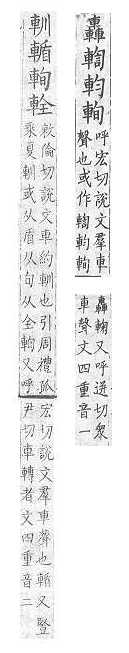 轟輷
呼宏切說文羣車
聲也或作輷
轟輷又呼迸切衆
車聲文四重音一
䡅輴輇
敕倫切說文車約䡅也引周禮孤
乘夏䡅或从盾从旬从全又呼
宏切說文羣車聲也輴又豎
尹切車轉者文四重音二